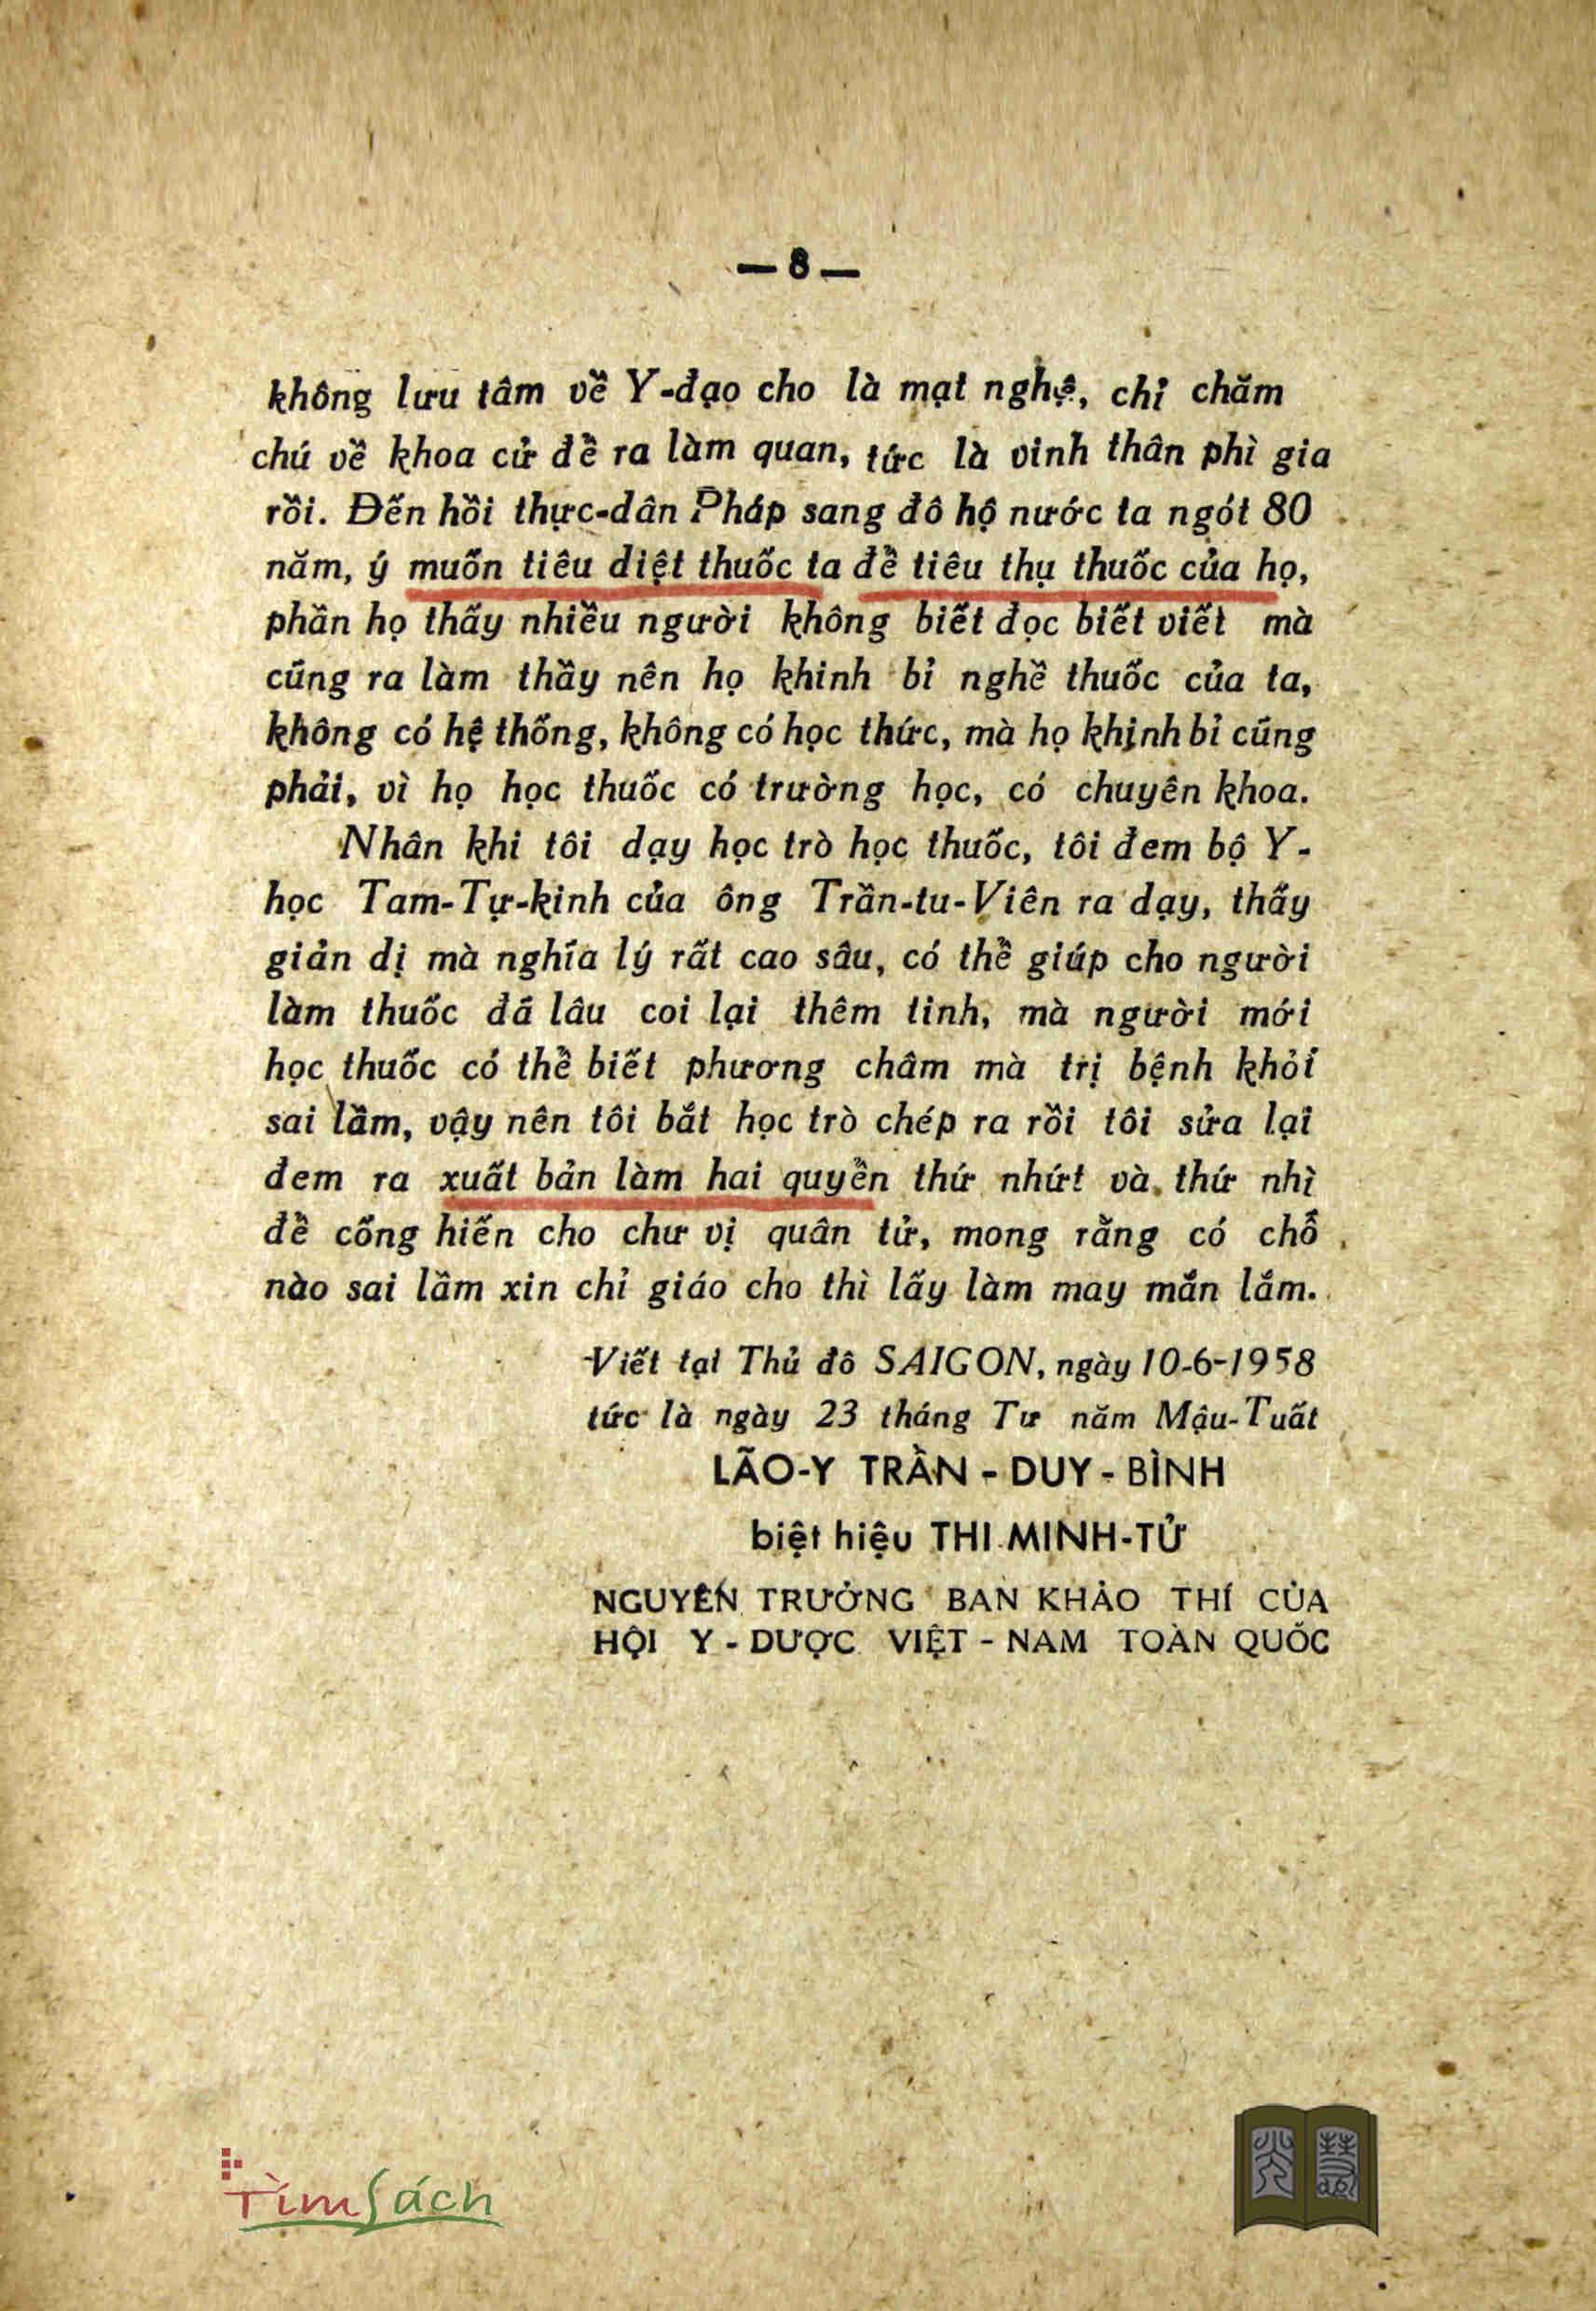 — 8 —
không lưu tâm về Y-đạo cho là mạt nghệ, chỉ chăm
chú về khoa cử để ra làm quan, tức là vinh thân phì gia
rồi. Đến hồi thực-dân Pháp sang đô hộ nước ta ngót 80
năm, ý muốn tiêu diệt thuốc ta để tiêu thụ thuốc của họ,
phần họ thấy nhiều người không biết đọc biết viết mà
cũng ra làm thầy nên họ khinh bỉ nghề thuốc của ta,
không có hệ thống, không có học thức, mà họ khinh bỉ cũng
phải, vì họ học thuốc có trường học, có chuyên khoa.
Nhân khi tôi dạy học trò học thuốc, tôi đem bộ Y-
học Tam-Tự-kinh của ông Trần-tu-Viên ra dạy, thấy
giản dị mà nghĩa lý rất cao sâu, có thể giúp cho người
làm thuốc đã lâu coi lại thêm tinh, mà người mới
học thuốc có thể biết phương châm mà trị bệnh khỏi
sai lầm, vậy nên tôi bắt học trò chép ra rồi tôi sửa lại
đem ra xuất bản làm hai quyển thứ nhứt và thứ nhì
để cống hiến cho chư vị quân tử, mong rằng có chỗ
nào sai lầm xin chỉ giáo cho thì lấy làm may mắn lắm.
Viết tại Thủ đô SAIGON, ngày 10-6-1958
tức là ngày 23 tháng Tư năm Mậu-Tuất
LÃO-Y TRẦN - DUY - BÌNH
biệt hiệu THI MINH-TỬ
NGUYÊN TRƯỞNG BAN KHẢO THÍ CỦA
HỘI Y - DƯỢC VIỆT - NAM TOÀN QUỐC
TìmSách